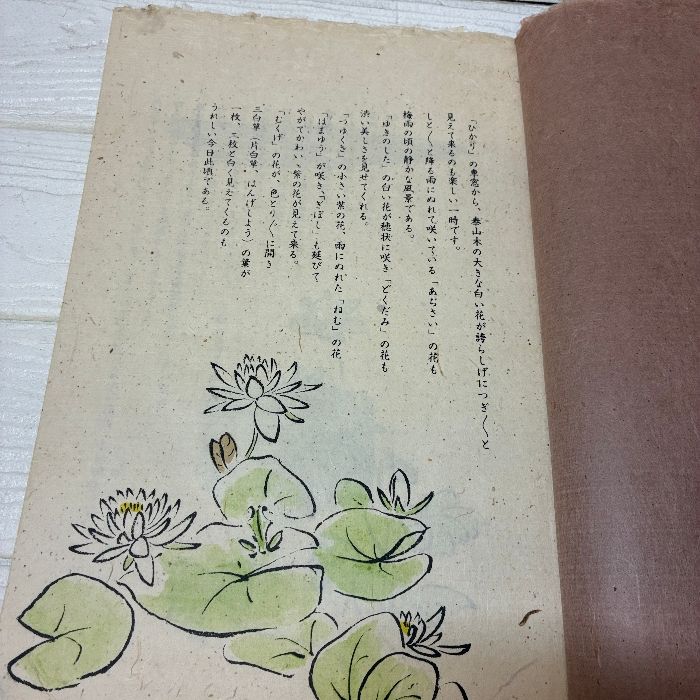 「ひかり」の車窓から、泰山木の大きな白い花が誇らしげにつぎ〱と
見えて来るのも楽しい一時です。
しと〱と降る雨にぬれて咲いている「あぢさい」の花も
梅雨の頃の静かな風景である。
「ゆきのした」の白い花が穂状に咲き「どくだみ」の花も
渋い美しさを見せてくれる。
「つゆくさ」の小さい紫の花、雨にぬれた「ねむ」の花
「はまゆう」が咲き、「ぎぼし」も延びて
やがてかわいゝ紫の花が見えて来る。
「むくげ」の花が、色とり〲に開き
三白草(片白草、はんげしよう)の葉が
一枚、二枚と白く見えてくるのも
うれしい今日此頃である。